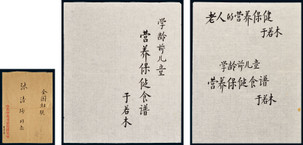 学龄前儿童
营养保健食谱
于若木
老人的营养保健
于若木
学龄前儿童
营养保健食谱
于若木